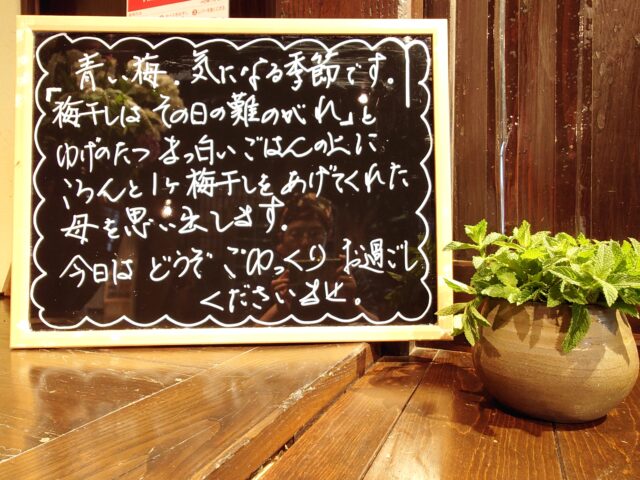 青い梅。気になる季節です。
「梅干しは その日の難のがれ」と
ゆげのたつ まっ白い ごはんの上に
ころんと1ヶ 梅干しを あげてくれた
母を思い出します。
今日は どうぞ ごゆっくり お過ごし
くださいませ。